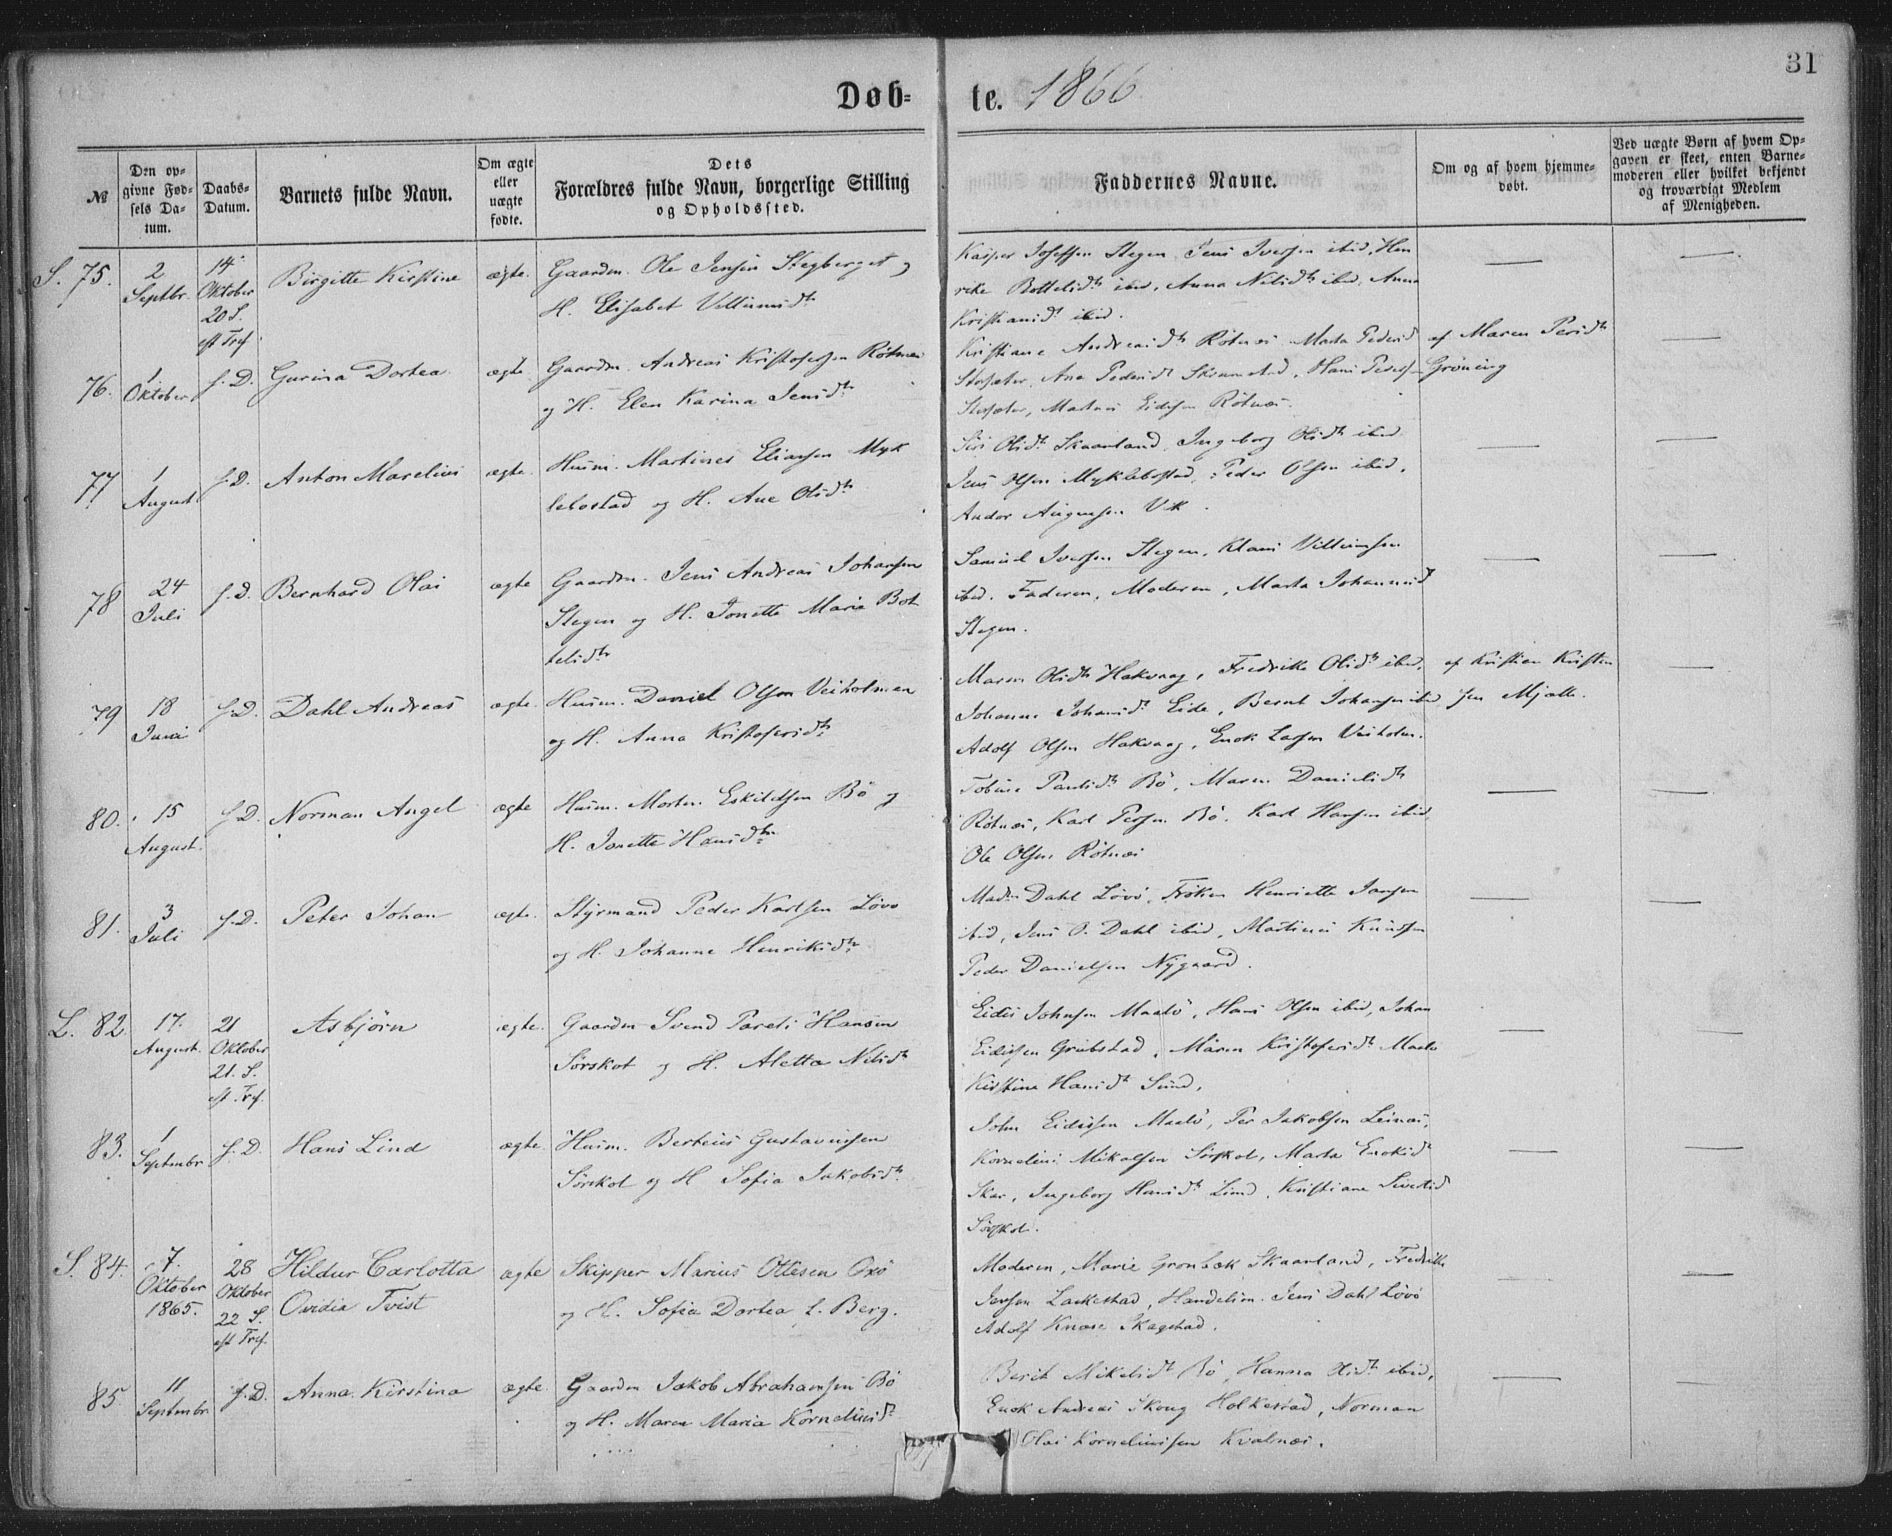 31
Døb= te. 1866
№
Den op-
givne Fød-
sels Da-
tum.
Daabs-
Datum.
Barnets fulde Navn.
Om ægte
eller
uægte
fødte.
Dets
Forældres fulde Navn, borgerlige Stilling
og Opholdssted.
Faddernes Navne.
Om og af hvem hjemme-
døbt.
Ved uægte Børn af hvem Op-
gaven er skeet, enten Barne-
moderen eller hvilket bekjendt
og troværdigt Medlem
af Menigheden.
S. 75.
2
Septbr.
14
Oktober
20 S.
eft Tref.
Birgitte Kirstine
ægte.
Gaardm. Ole Jensen Stegberget og
H. Elisabet Villumsdtr
Kasper Josefsen Stegen, Jens Iversen ibid, Hen
rike Bottelsdtr ibid, Anna Nilsdtr ibid, Anna
Kristiansdt ibid.
76.
1
Oktober
s. D.
Gurina Dortea
ægte
Gaardm. Andreas Kristofersen Rötnæs
og H. Elen Karina Jensdtr
Kristiane Andreasdtr Rötnæs Marta Pedersd
Storsæter, Ane Pedersdt, Hans Peders
Storsæter, Martines Eidissen Rötnæs.
af Maren Persdtr
Gröning
77
1
August
s. D.
Anton Marelius
ægte.
Husm. Martines Eliasen Myk
lebostad og H. Ane Olsdtr
Siri Olsdtr Skaanland, Ingeborg Olsdtr ibid.
Jens Olsen Myklebostad, Peder Olsen ibid.
Andor Vik.
78
24
Juli
s. D.
Bernhard Olai
ægte
Gaardm. Jens Andreas Johansen
Stegen og H. Jonette Maria Bot
telsdtr
Samuel Iversen Stegen, Klaus Villumsen
ibid. Faderen, Moderen, Marta Johannesd
Stegen.
79
18
Juni
s. D.
Dahl Andreas
ægte.
Husm. Daniel Olsen Veiholmen
og H. Anna Kristofersdtr
Maren Olsdtr Hakvaag, Fredrike Olsdtr ibid.
Johanne Johansdt Eide, Bernt Johansen ibid
Adolf Olsen Hakvaag, Enok Larsen Veiholm.
af Kristian Kristen
sen Mjelle.
80.
15
August.
s. D.
Norman Angel
ægte
Husm. Morten Eskildsen Bö og
H. Jonette Hansdtr
Tobine Paulsdtr Bö, Maren Danielsdtr
Rötnæs, Karl Persen Bö. Karl Hansen ibid
Ole Olsen Rötnæs
81.
3
Juli
s. D.
Peter Johan
ægte.
Styrmand Peder Karlsen Lövö
og H. Johanne Henriksdtr
Mad. Dahl Lövö, Fröken Henriette Jansen
ibid, Jens O. Dahl ibid, Martines Knudsen
Peder Danielsen Nygaard.
L. 82
17.
August.
21
Oktober
21. S.
eft. Tref.
Asbjørn
ægte.
Gaardm Svend Pareli Hansen
Sörskot og H. Aletta Nilsdtr
Eidis Johnsen Maalö, Hans Olsen ibid, Johan
Eidissen Grubstad, Maren Kristofersdtr Maalö
Kirstine Hansdtr Sund,
83.
1
Septmbr
s. D.
Hans Lind
ægte
Husm. Berteus Gustavussen
Sörskot og H Sofia Jakobsdtr
John Eidissen Maalö, Per Jakobsen Leines,
Kornelius Mikalsen Sörskot, Marta Enoksdt
Skar, Ingeborg Hansdtr Lund, Kristiane Sivertsd
Sörskot.
S. 84.
7.
Oktober
1865.
28
Oktober
22 S.
eft Tref.
Hildur Carlotta
Ovidia Tvist
ægte
Skipper Marius Ottesen Oxö
og H. Sofia Dortea f. Berg.
Moderen, Marie Grønbæk Skaanland, Fredrikke
Jensen Laskestad, Handelsm. Jens Dahl Lövö
Adolf Knose Skagstad.
85
11
Septmbr
s. D.
Anna Kirstina
ægte.
Gaardm Jakob Abrahamsen Bö
og H. Maren Maria Korneliusdt
Berit Mikelsdt Bö, Hanna Olsdtr ibid,
Enok Andreas Skoug Holkestad, Norman
Olai Korneliussen Kvalnæs.